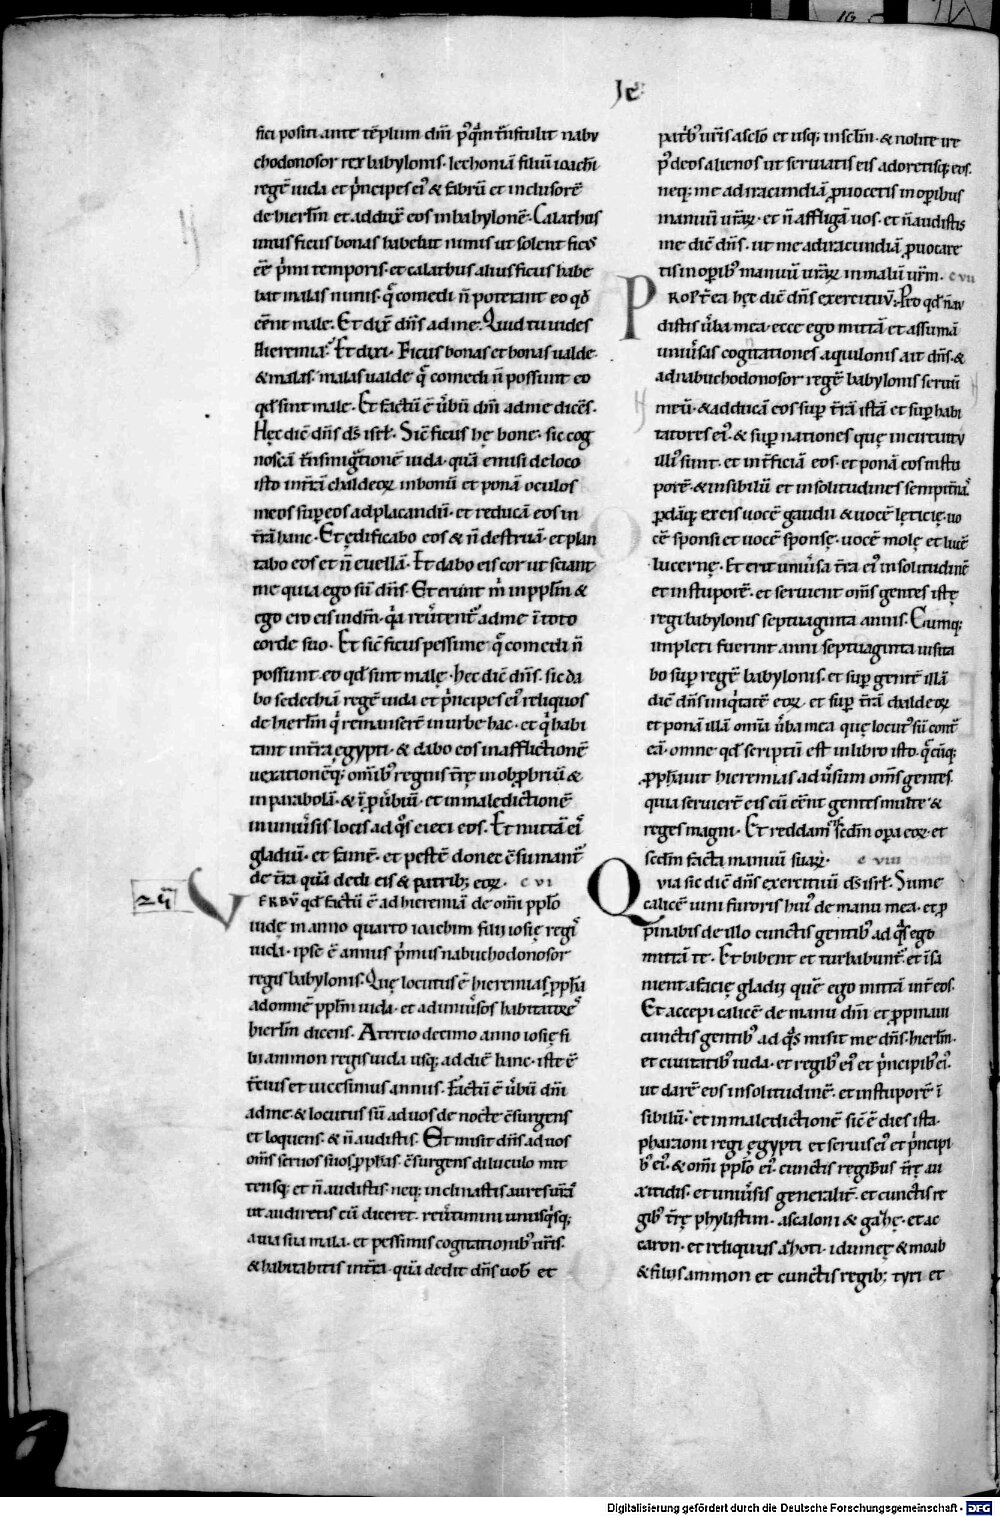 Je
fici positi ante tēplum dni pꝰqm trnstulit nabu
chodonosor rex babylonis. iechoniā filiū ioachi
regē iuda et pncipes eiꝰ & fabrū et inclusorē
de hierlm et adduxē eos in babylonē. Calathus
unus ficus bonas habebat nimis ut solent ficꝰ
eē pmi temporis. et calathus alius ficus habe
bat malas nimis. q comedi n̄ poterant eo qd
eent male. Et dix dns ad me. Quid tu uides
Hieremia. Et dixi. Ficus bonas et bonas ualde.
& malas. malas ualde q comedi n̄ possunt eo
qd sint male. Et factū ē ubū dni ad me dicēs.
Hęc dic dns ds isrl. Sic ficus hę bone. sic cog
noscā trnsmigtionē iuda. quā emisi de loco
isto in trā chaldeoꝝ in bonū et ponā oculos
meos sup eos ad placandū. et reducā eos in
trā hanc. Et ędificabo eos & n̄ destruā. et plan
tabo eos et n̄ euellā. Et dabo eis cor ut sciant
me quia ego sū dns. Et erunt m in pplm &
ego ero eis in dm. qa reutent ad me ī toto
corde suo. Et sic ficus pessime q comedi n̄
possunt eo qd sint malę. hec dic dns. sic da
bo sedechiā regē iuda et pncipes eiꝰ reliquos
de hierlm q remanserē in urbe hac. et q habi
tant in tra ęgypti. & dabo eos in afflictionē
uexationēq; omibꝰ regnis trę in obpbriū &
in parabolā. & ī pubiū. et in maledictionē
in uniusis locis ad qs eieci eos. Et mittā ei
gladiū. et famē. et pestē donec csumant
de tra quā dedi eis & patrib; eoꝝ. c vi
24
VERBV qd factū ē ad hieremiā de omi pplo
iudę in anno quarto ioachim filii iosię regi
iuda. ipse ē annus pmus nabuchodonosor
regis babylonis. Quę locutus ē hieremias ppha
ad omnē pplm iuda. et ad uniusos habitatore
hierlm dicens. A tercio decimo anno iosię fi
lii ammon regis iuda usq; ad diē hanc. iste ē
tcius et uicesimus annus. Factū ē ubū dni
ad me. & locutus sū ad uos de nocte csurgens
et loquens. & n̄ audistis. Et misit dns ad uos
oms seruos suos pphas. csurgens diluculo mit
tensq; et n̄ audistis. neq; inclinastis aures urā
ut audiretis cū diceret. reutimini unusqsq;
a uia sua mala. et pessimis cogitationibꝰ uris.
& habitabitis in tra. quā dedit dns uob et
patbꝰ uris a sclo et usq; in sclm. & nolite ire
pꝰ deos alienos ut seruiatis eis adoretisq; eos.
neq; me ad iracundiā puocetis in opibus
manuū uraꝝ. et n̄ affligā uos. et n̄ audistis
me dic dns. ut me ad iracundiā puocare
tis in opibꝰ manuū uraꝝ in malū urm. c vii
PROPTrea hęc dic dns exercituū. Pro qd n̄ au
distis uba mea. ecce ego mittā et assumā
uniusas cogitationes aquilonis ait dns. &
ad nabuchodonosor regē babylonis seruū
meū. & adducā eos sup trā istā et sup habi
tatores eiꝰ. & sup nationes quę in circuitu
illiꝰ sunt. et intficiā eos. et ponā eos in stu
porē. & in sibilū et in solitudines sempitnā.
pdāq; ex eis uocē gaudii & uocē lęticię. uo
cē sponsi et uocē sponsę. uocē molę et lucē
lucernę. Et erit uniusa tra eiꝰ in solitudinē
et in stuporē. et seruient oms gentes istę
regi babylonis septuaginta annis. Cumq;
impleti fuerint anni septuaginta uisita
bo sup regē babylonis. et sup gentē illā
dic dns iniqtatē eoꝝ. et sup trā chaldeoꝝ
et ponā illā omia uba mea quę locutꝰ sū cont
eā. omne qd scriptū est in libro isto. qcūq;
pphauit hieremias adusum oms gentes.
quia seruierē eis cū eent gentes multe &
reges magni. Et reddam eis scdm opa eoꝝ. et
scdm facta manuū suaꝝ. c viii
Quia sic dic dns exercituū ds isrl. Sume
calicē uini furoris huiꝰ de manu mea. et p
pinabis de illo cunctis gentibꝰ ad qs ego
mittā te. Et bibent et turbabunt. et īsa
nient a facię gladii quē ego mittā int eos.
Et accepi calicē de manu dni et ppinaui
cunctis gentibꝰ ad qs misit me dns. hierlm.
et ciuitatibꝰ iuda. et regibꝰ eiꝰ et pncipibꝰ eiꝰ.
ut darē eos in solitudinē. et in stuporē ī
sibilū. et in maledictionē sic ē dies ista.
pharaoni regi ęgypti et seruis eiꝰ et pncipi
bꝰ eiꝰ. & omi pplo eiꝰ. cunctis regibus trę au
sitidis. et uniusis generalit. et cunctis re
gibꝰ trę phylistim. ascaloni & gazę. et ac
caron. et reliquiis azoti. idumeę & moab
& filiis ammon et cunctis regib; tyri et
Digitalisierung gefördert durch die Deutsche Forschungsgemeinschaft - DFG